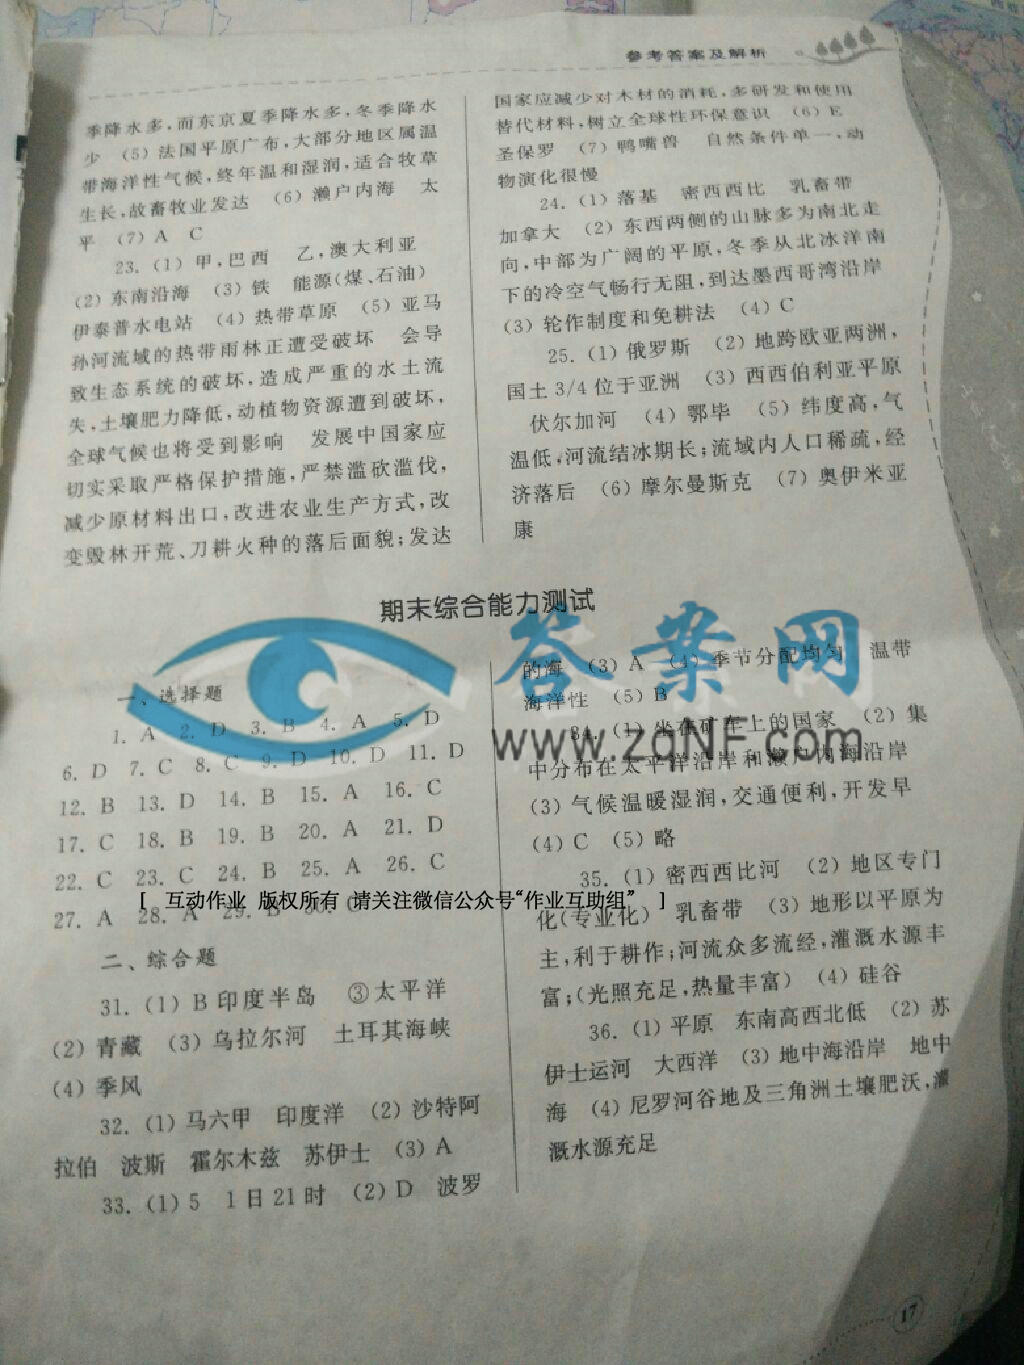 参考答案及解析
季降水多,而东京夏季降水多,冬季降水
少 (5)法国平原广布,大部分地区属温
带海洋性气候,终年温和湿润,适合牧草
生长,故畜牧业发达 (6)濑户内海 太
平 (7)A C
23.(1)甲,巴西 乙,澳大利亚
(2)东南沿海 (3)铁 能源(煤、石油)
伊泰普水电站 (4)热带草原 (5)亚马
孙河流域的热带雨林正遭受破坏 会导
致生态系统的破坏,造成严重的水土流
失,土壤肥力降低,动植物资源遭到破坏,
全球气候也将受到影响 发展中国家应
切实采取严格保护措施,严禁滥砍滥伐,
减少原材料出口,改进农业生产方式,改
变毁林开荒、刀耕火种的落后面貌;发达
国家应减少对木材的消耗,多研发和使用
替代材料,树立全球性环保意识 (6)E
圣保罗 (7)鸭嘴兽 自然条件单一,动
物演化很慢
24.(1)落基 密西西比 乳畜带
加拿大 (2)东西两侧的山脉多为南北走
向,中部为广阔的平原,冬季从北冰洋南
下的冷空气畅行无阻,到达墨西哥湾沿岸
(3)轮作制度和免耕法 (4)C
25.(1)俄罗斯 (2)地跨欧亚两洲,
国土3/4位于亚洲 (3)西西伯利亚平原
伏尔加河 (4)鄂毕 (5)纬度高,气
温低,河流结冰期长;流域内人口稀疏,经
济落后 (6)摩尔曼斯克 (7)奥伊米亚
康
期末综合能力测试
一、选择题
1. A 2. D 3. B 4. A 5. D
6. D 7. C 8. C 9. D 10. D 11. D
12. B 13. D 14. B 15. A 16. C
17. C 18. B 19. B 20. A 21. D
22. C 23. C 24. B 25. A 26. C
27. A 28. A 29. B 30. C
二、综合题
31.(1)B印度半岛 ③太平洋
(2)青藏 (3)乌拉尔河 土耳其海峡
(4)季风
32.(1)马六甲 印度洋 (2)沙特阿
拉伯 波斯 霍尔木兹 苏伊士 (3)A
33.(1)5 1日21时 (2)D 波罗
的海 (3)A (4)季节分配均匀 温带
海洋性 (5)B
34.(1)坐在矿车上的国家 (2)集
中分布在太平洋沿岸和濑户内海沿岸
(3)气候温暖湿润,交通便利,开发早
(4)C (5)略
35.(1)密西西比河 (2)地区专门
化(专业化) 乳畜带 (3)地形以平原为
主,利于耕作;河流众多流经,灌溉水源丰
富;(光照充足,热量丰富) (4)硅谷
36.(1)平原 东南高西北低 (2)苏
伊士运河 大西洋 (3)地中海沿岸 地中
海 (4)尼罗河谷地及三角洲土壤肥沃,灌
溉水源充足
答案网
www.zqNF.com
[ 互动作业 版权所有 请关注微信公众号“作业互助组” ]
17